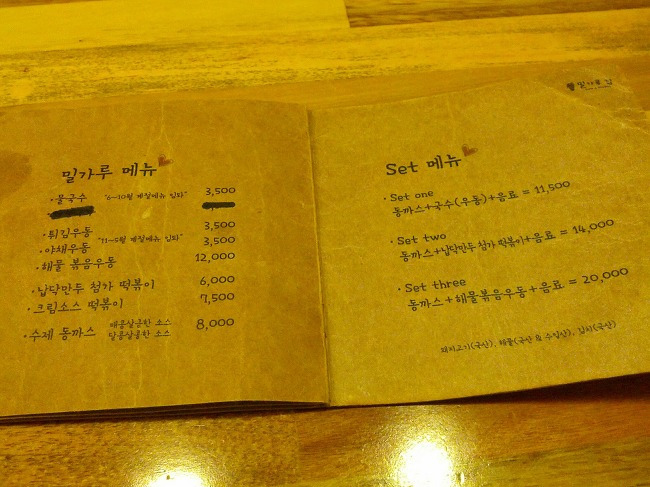 밀가루 메뉴
·물국수 "6~10월 계절메뉴 입돠" 3,500
·튀김우동 3,500
·야채우동 "11~5월 계절메뉴 입돠" 3,500
·해물 볶음우동 12,000
·납닥만두 첨가 떡볶이 6,000
·크림소스 떡볶이 7,500
·수제 돈까스 매콤살콤한 소스 8,000
달콤살콤한 소스
밀가루 집
Set 메뉴
·Set one
돈까스+국수(우동)+음료 = 11,500
·Set two
돈까스+납닥만두 첨가 떡볶이+음료 = 14,000
·Set three
돈까스+해물볶음우동+음료 = 20,000
돼지고기(국산), 해물(국산 & 수입산), 김치(국산)